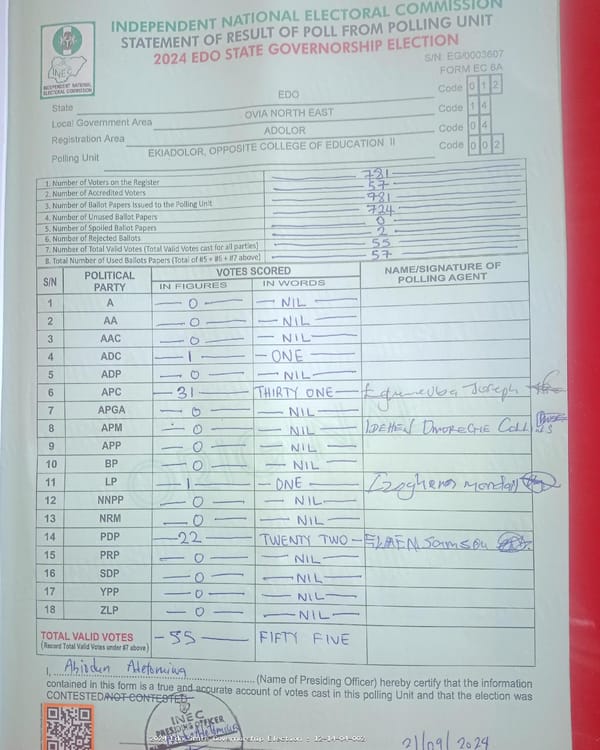 INDEPENDENT NATIONAL ELECTORAL COMMISSION
STATEMENT OF RESULT OF POLL FROM POLLING UNIT
2024 EDO STATE GOVERNORSHIP ELECTION
INEC
INDEPENDENT NATIONAL ELECTORAL COMMISSION
S/N: EG/0003607
FORM EC 8A
State EDO Code 0 1 2
Local Government Area OVIA NORTH EAST Code 1 4
Registration Area ADOLOR Code 0 4
Polling Unit EKIADOLOR, OPPOSITE COLLEGE OF EDUCATION II Code 0 0 2
1. Number of Voters on the Register 781
2. Number of Accredited Voters 57
3. Number of Ballot Papers Issued to the Polling Unit 781
4. Number of Unused Ballot Papers 724
5. Number of Spoiled Ballot Papers 0
6. Number of Rejected Ballots 2
7. Number of Total Valid Votes (Total Valid Votes cast for all parties) 55
8. Total Number of Used Ballots Papers (Total of #5 + #6 + #7 above) 57
S/N POLITICAL PARTY VOTES SCORED NAME/SIGNATURE OF POLLING AGENT
IN FIGURES IN WORDS
1 A 0 NIL
2 AA 0 NIL
3 AAC 0 NIL
4 ADC 1 ONE
5 ADP 0 NIL
6 APC 31 THIRTY ONE Joseph
7 APGA 0 NIL
8 APM 0 NIL IDEHEN
9 APP 0 NIL
10 BP 0 NIL
11 LP 1 ONE Monday
12 NNPP 0 NIL
13 NRM 0 NIL
14 PDP 22 TWENTY TWO Samson
15 PRP 0 NIL
16 SDP 0 NIL
17 YPP 0 NIL
18 ZLP 0 NIL
TOTAL VALID VOTES 55 FIFTY FIVE
(Record Total Valid Votes under #7 above)
I, Abiodun (Name of Presiding Officer) hereby certify that the information
contained in this form is a true and accurate account of votes cast in this polling Unit and that the election was
CONTESTED/NOT CONTESTED.
INEC
PRESIDING OFFICER
2024 Edo State Governorship Election : 12-14-04-002
21/09/2024